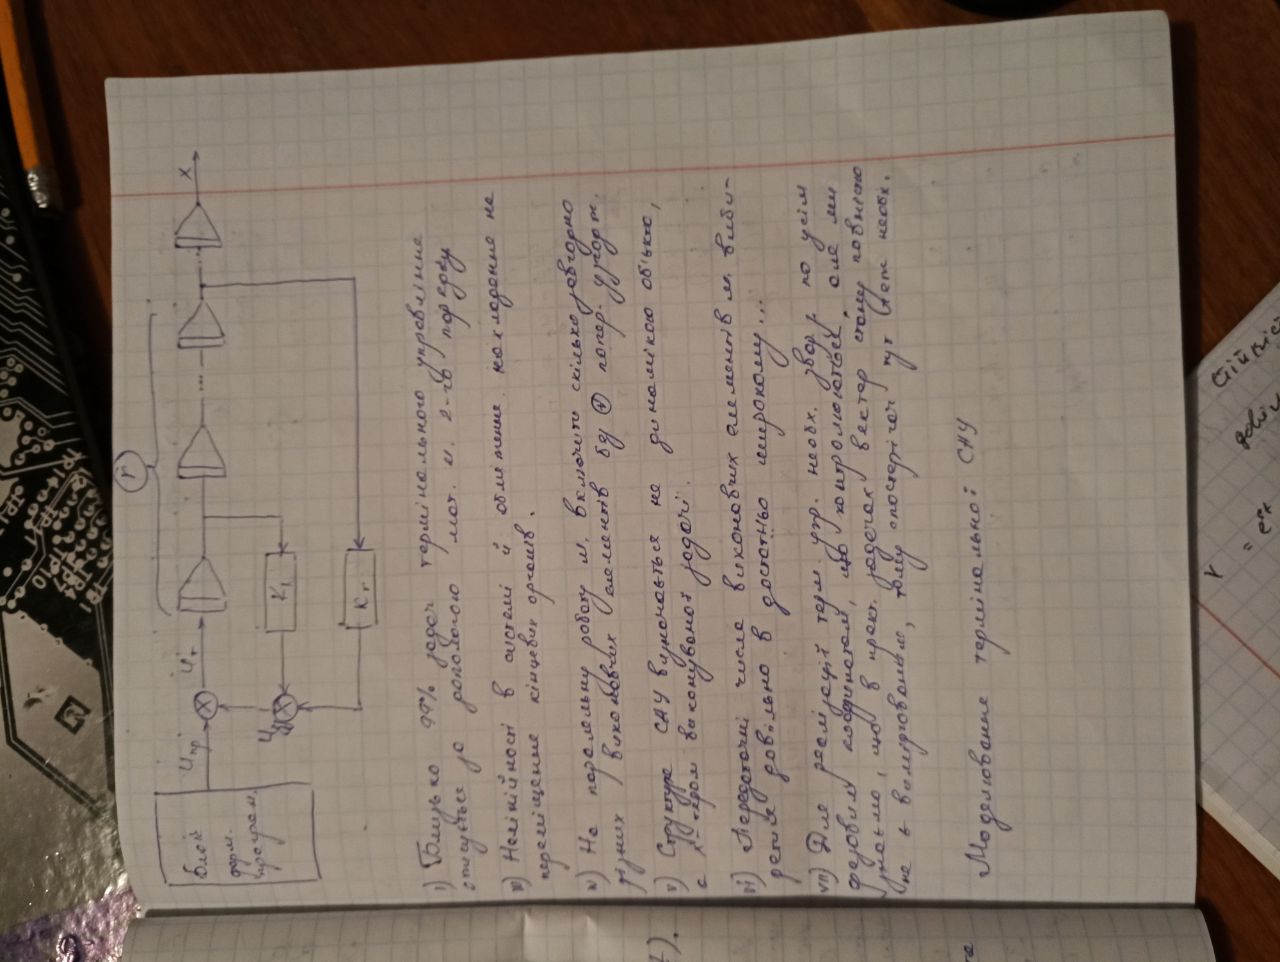 r
Блок
форм.
програм.
Uпр
Uт
X
K₁
Kr
i) Близько 99% задач термінального управління
описується за допомогою мат. м. 2-го порядку
iii) Нелінійності в системі й обмеження накладання на
переміщення кінцевих органів.
iv) На паралельну роботу м. включити скільки завгодно
різних виконавчих елементів без + попер. узгодж.
v) Структура САУ визначається не динамікою об'єкта,
а х-тером виконуваної задачі.
vi) Передаточні числа виконавчих елементів м. виби-
ратися довільно в достатньо широкому...
vii) Для реалізації терм. упр. необх. звор. з. по усім
фазовим координатам, що контролюються, але ми
знаємо, що в практ. задачах вектор стану повністю
не є вимірюваним, тому спостерігач тут теж необх.
Моделювання термінальної САУ
t).
та
TP10
TP7